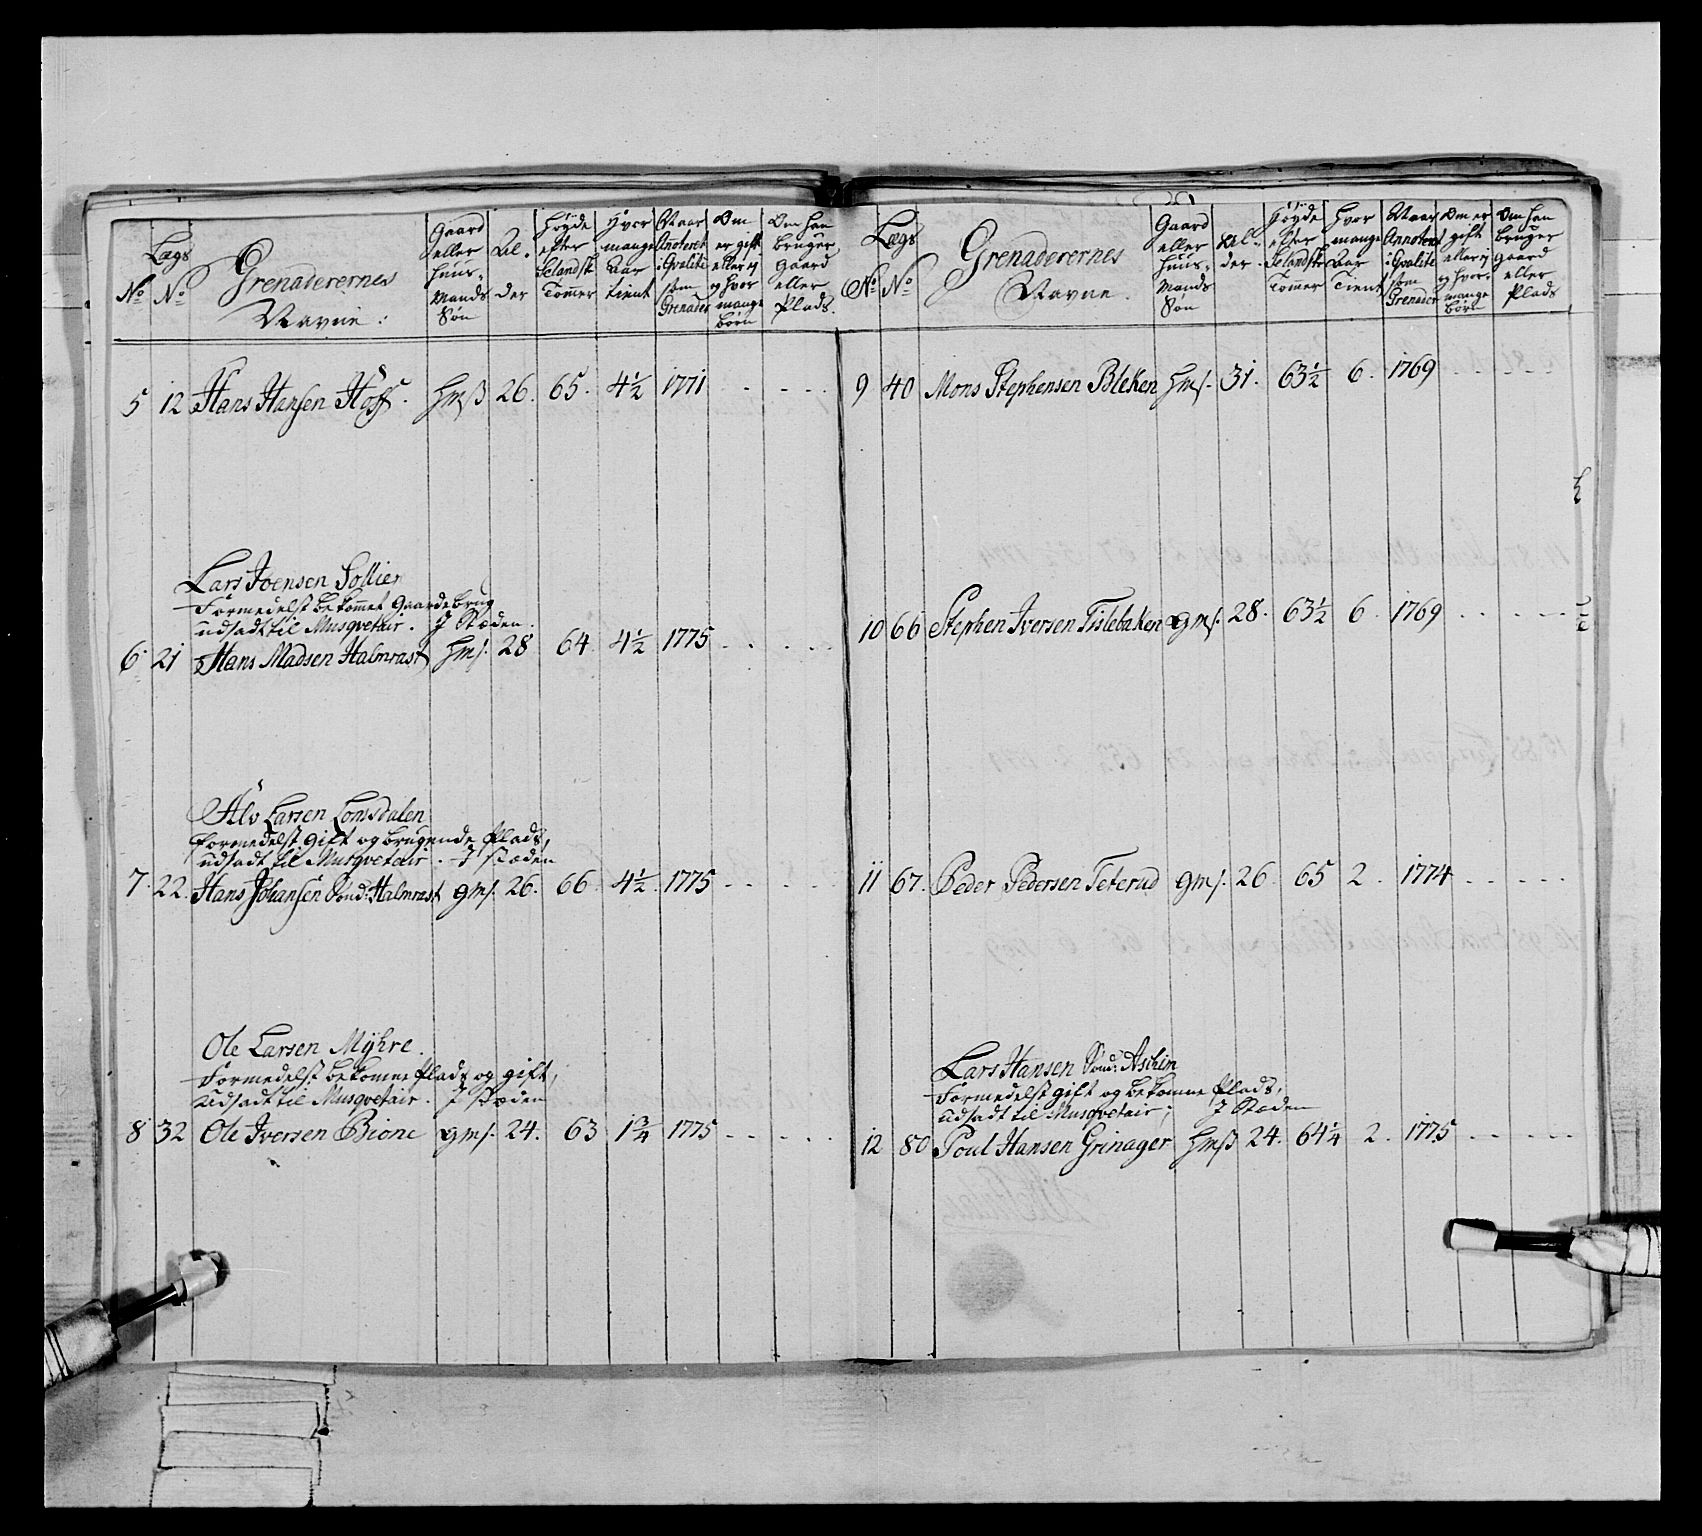 No
Lægs No
Grenaderernes Navne:
Gaard eller Huus-Mands Søn
Al-der
Høyde efter Selandsk Tommer
Hvor mange Aar tient
Naar Anoteret i Qvalite som Grenader
Om er gift eller ej og hvor mange børn
Om han bruger gaard eller Plads.
5 12 Hans Hansen Hoff. Hmß 26. 65. 4½ 1771 - - - -
Lars Joensen Sollien
Formedelst bekommet Gaardebrug
udsadt til Musqvetair. J Stæden.
6 21 Hans Madsen Halmrast Hms. 28 64 4½ 1775 - - - -
Alv Larsen Lomsdalen
formedelst gift og brugende Plads,
udsadt til Musqvetair. J Stæden
7. 22. Hans Johansen Sond: Halmrast gms. 26. 66 4½. 1775 - - - -
Ole Larsen Myhre.
Formedelst bekomne Plads og gift,
udsadt til Musqvetair. J Stæden
8 32 Ole Iversen Bione gms. 24. 63 1¾ 1775 - - - -
No
Lægs No
Grenaderernes Navne.
Gaard eller Huus-Mands Søn
Al-der
Høyde efter Selandsk Tommer
Hvor mange Aar Tient
Naar Annoteret i Qvalite som Grenader
Om er gift eller ej og hvor mange børn
Om han bruger gaard eller Plads
9 40 Mons Stephensen Bleken Hms. 31. 63½ 6. 1769 - - - -
10 66 Stephen Iversen Tislebaken gms. 28. 63½ 6. 1769 - - - -
11 67. Peder Pedersen Teterud gms. 26 65 2. 1774 - - - -
Lars Hansen Sond: Aschim
Formedelst gift og bekomne Plads,
udsadt til Musqvetair; J Stæden
12 80 Poul Hansen Grinager Hmß 24. 64¼ 2. 1775 - - - -